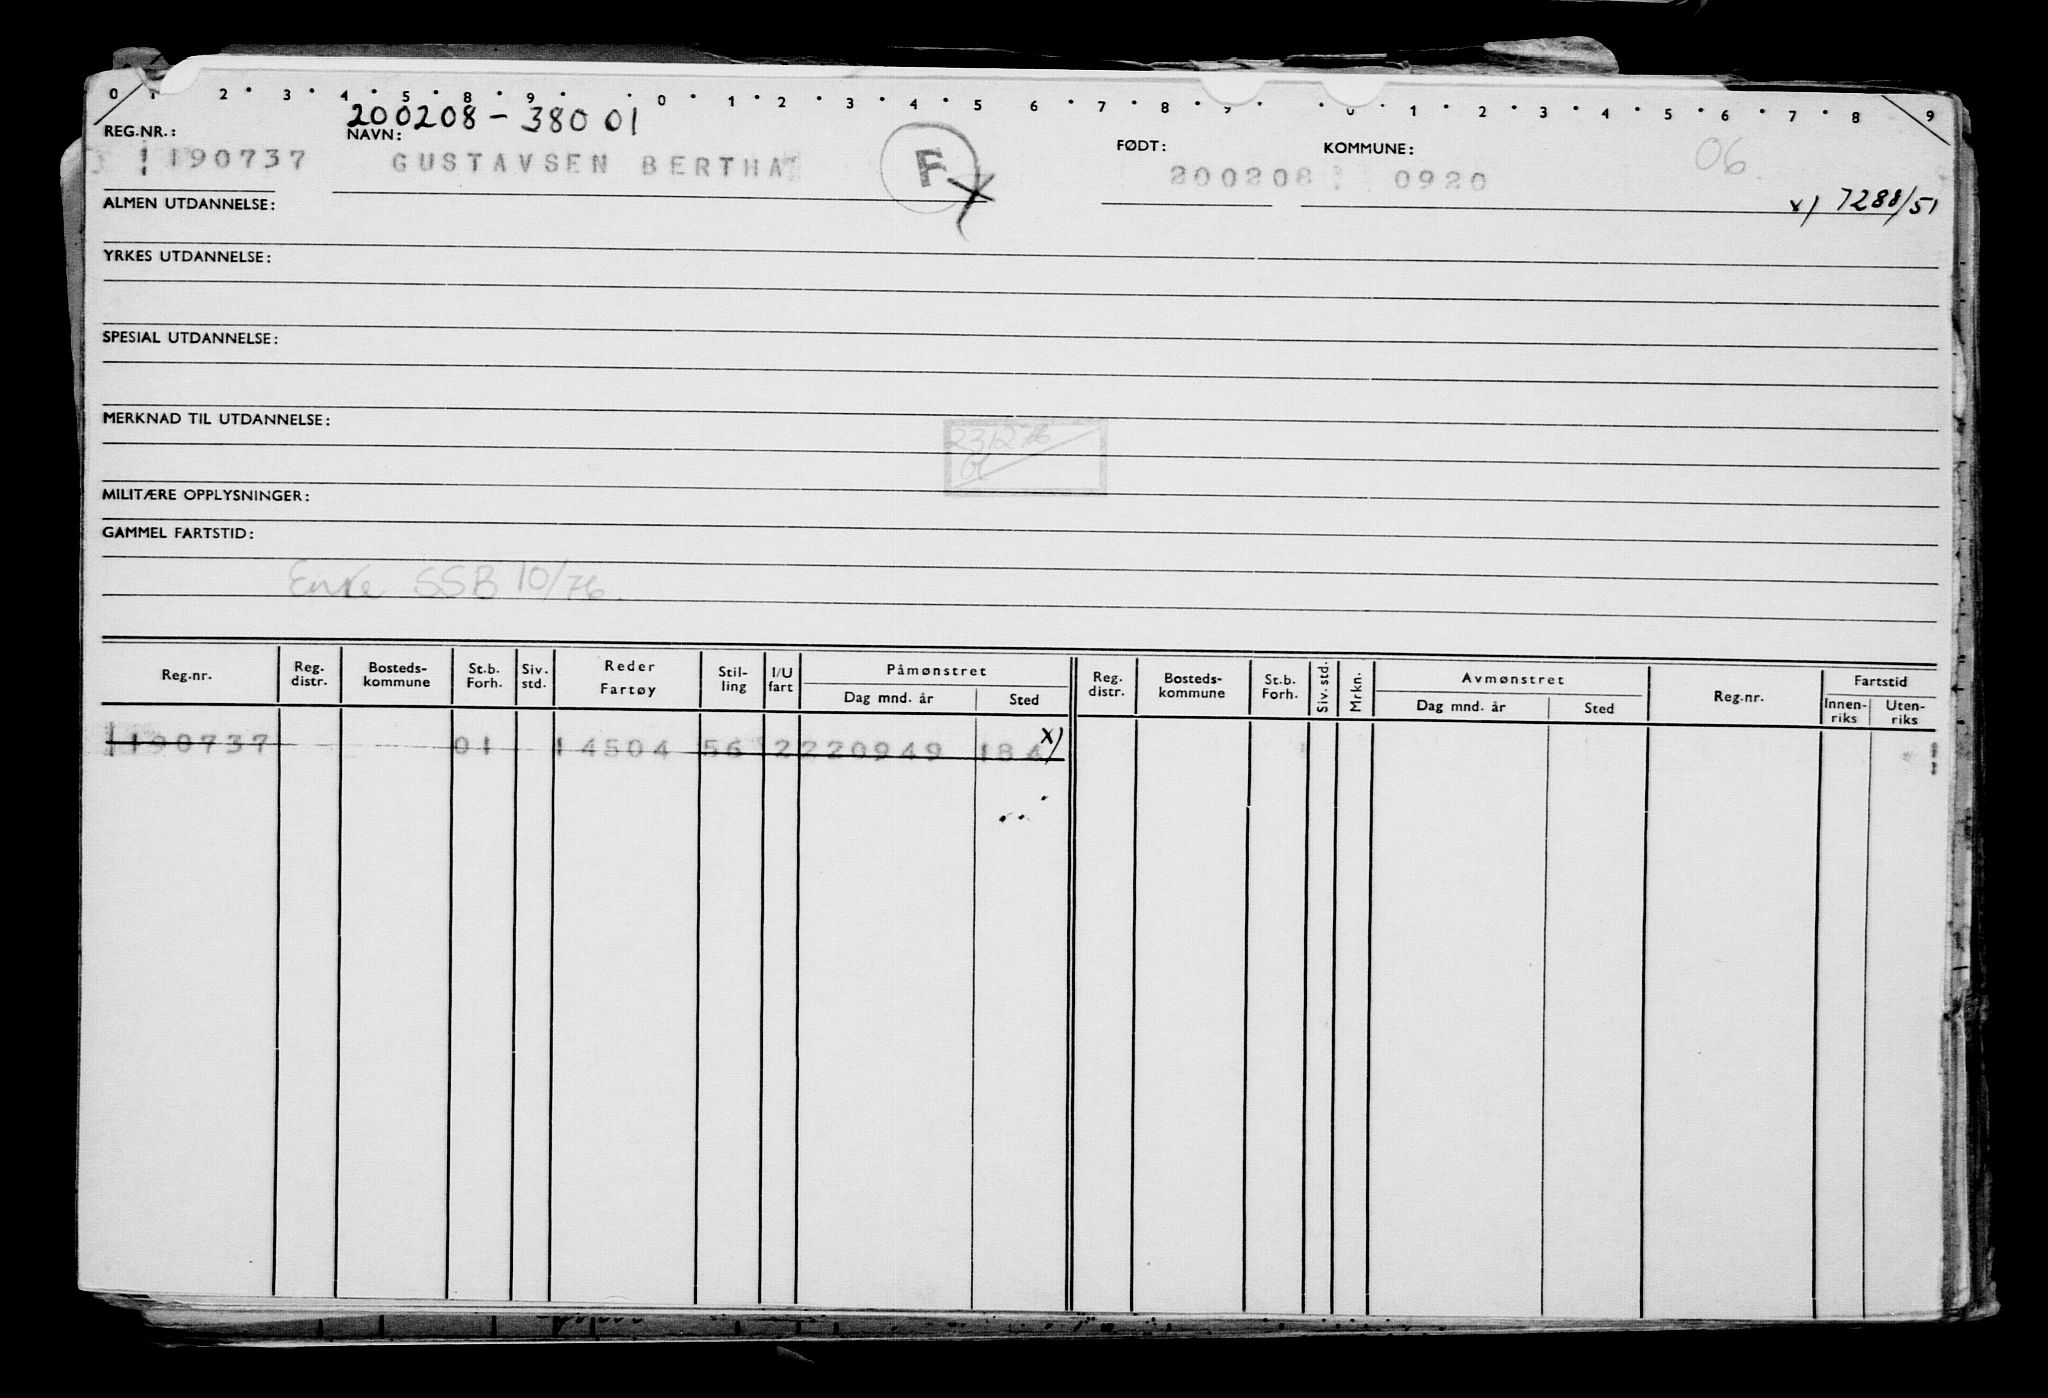 0 1 2 3 4 5 8 9 0 1 2 3 4 5 6 7 8 9 0 1 2 3 4 5 6 7 8 9
200208 - 380 01
REG.NR.: NAVN: FØDT: KOMMUNE: 06
190737 GUSTAVSEN BERTHA F 200208 0920
ALMEN UTDANNELSE: x) 7288/51
YRKES UTDANNELSE:
SPESIAL UTDANNELSE:
MERKNAD TIL UTDANNELSE:
231276
MILITÆRE OPPLYSNINGER:
GAMMEL FARTSTID:
Enke SSB 10/76.
Reg.nr. Reg. distr. Bosteds- kommune St.b. Forh. Siv. std. Reder Fartøy Stil- ling I/U fart Påmønstret Dag mnd. år Sted Reg. distr. Bosteds- kommune St.b. Forh. Siv. std. Mrkn. Avmønstret Dag mnd. år Sted Reg.nr. Fartstid Innen- riks Uten- riks
1190737 01 14504 56 2 220949 184 x)